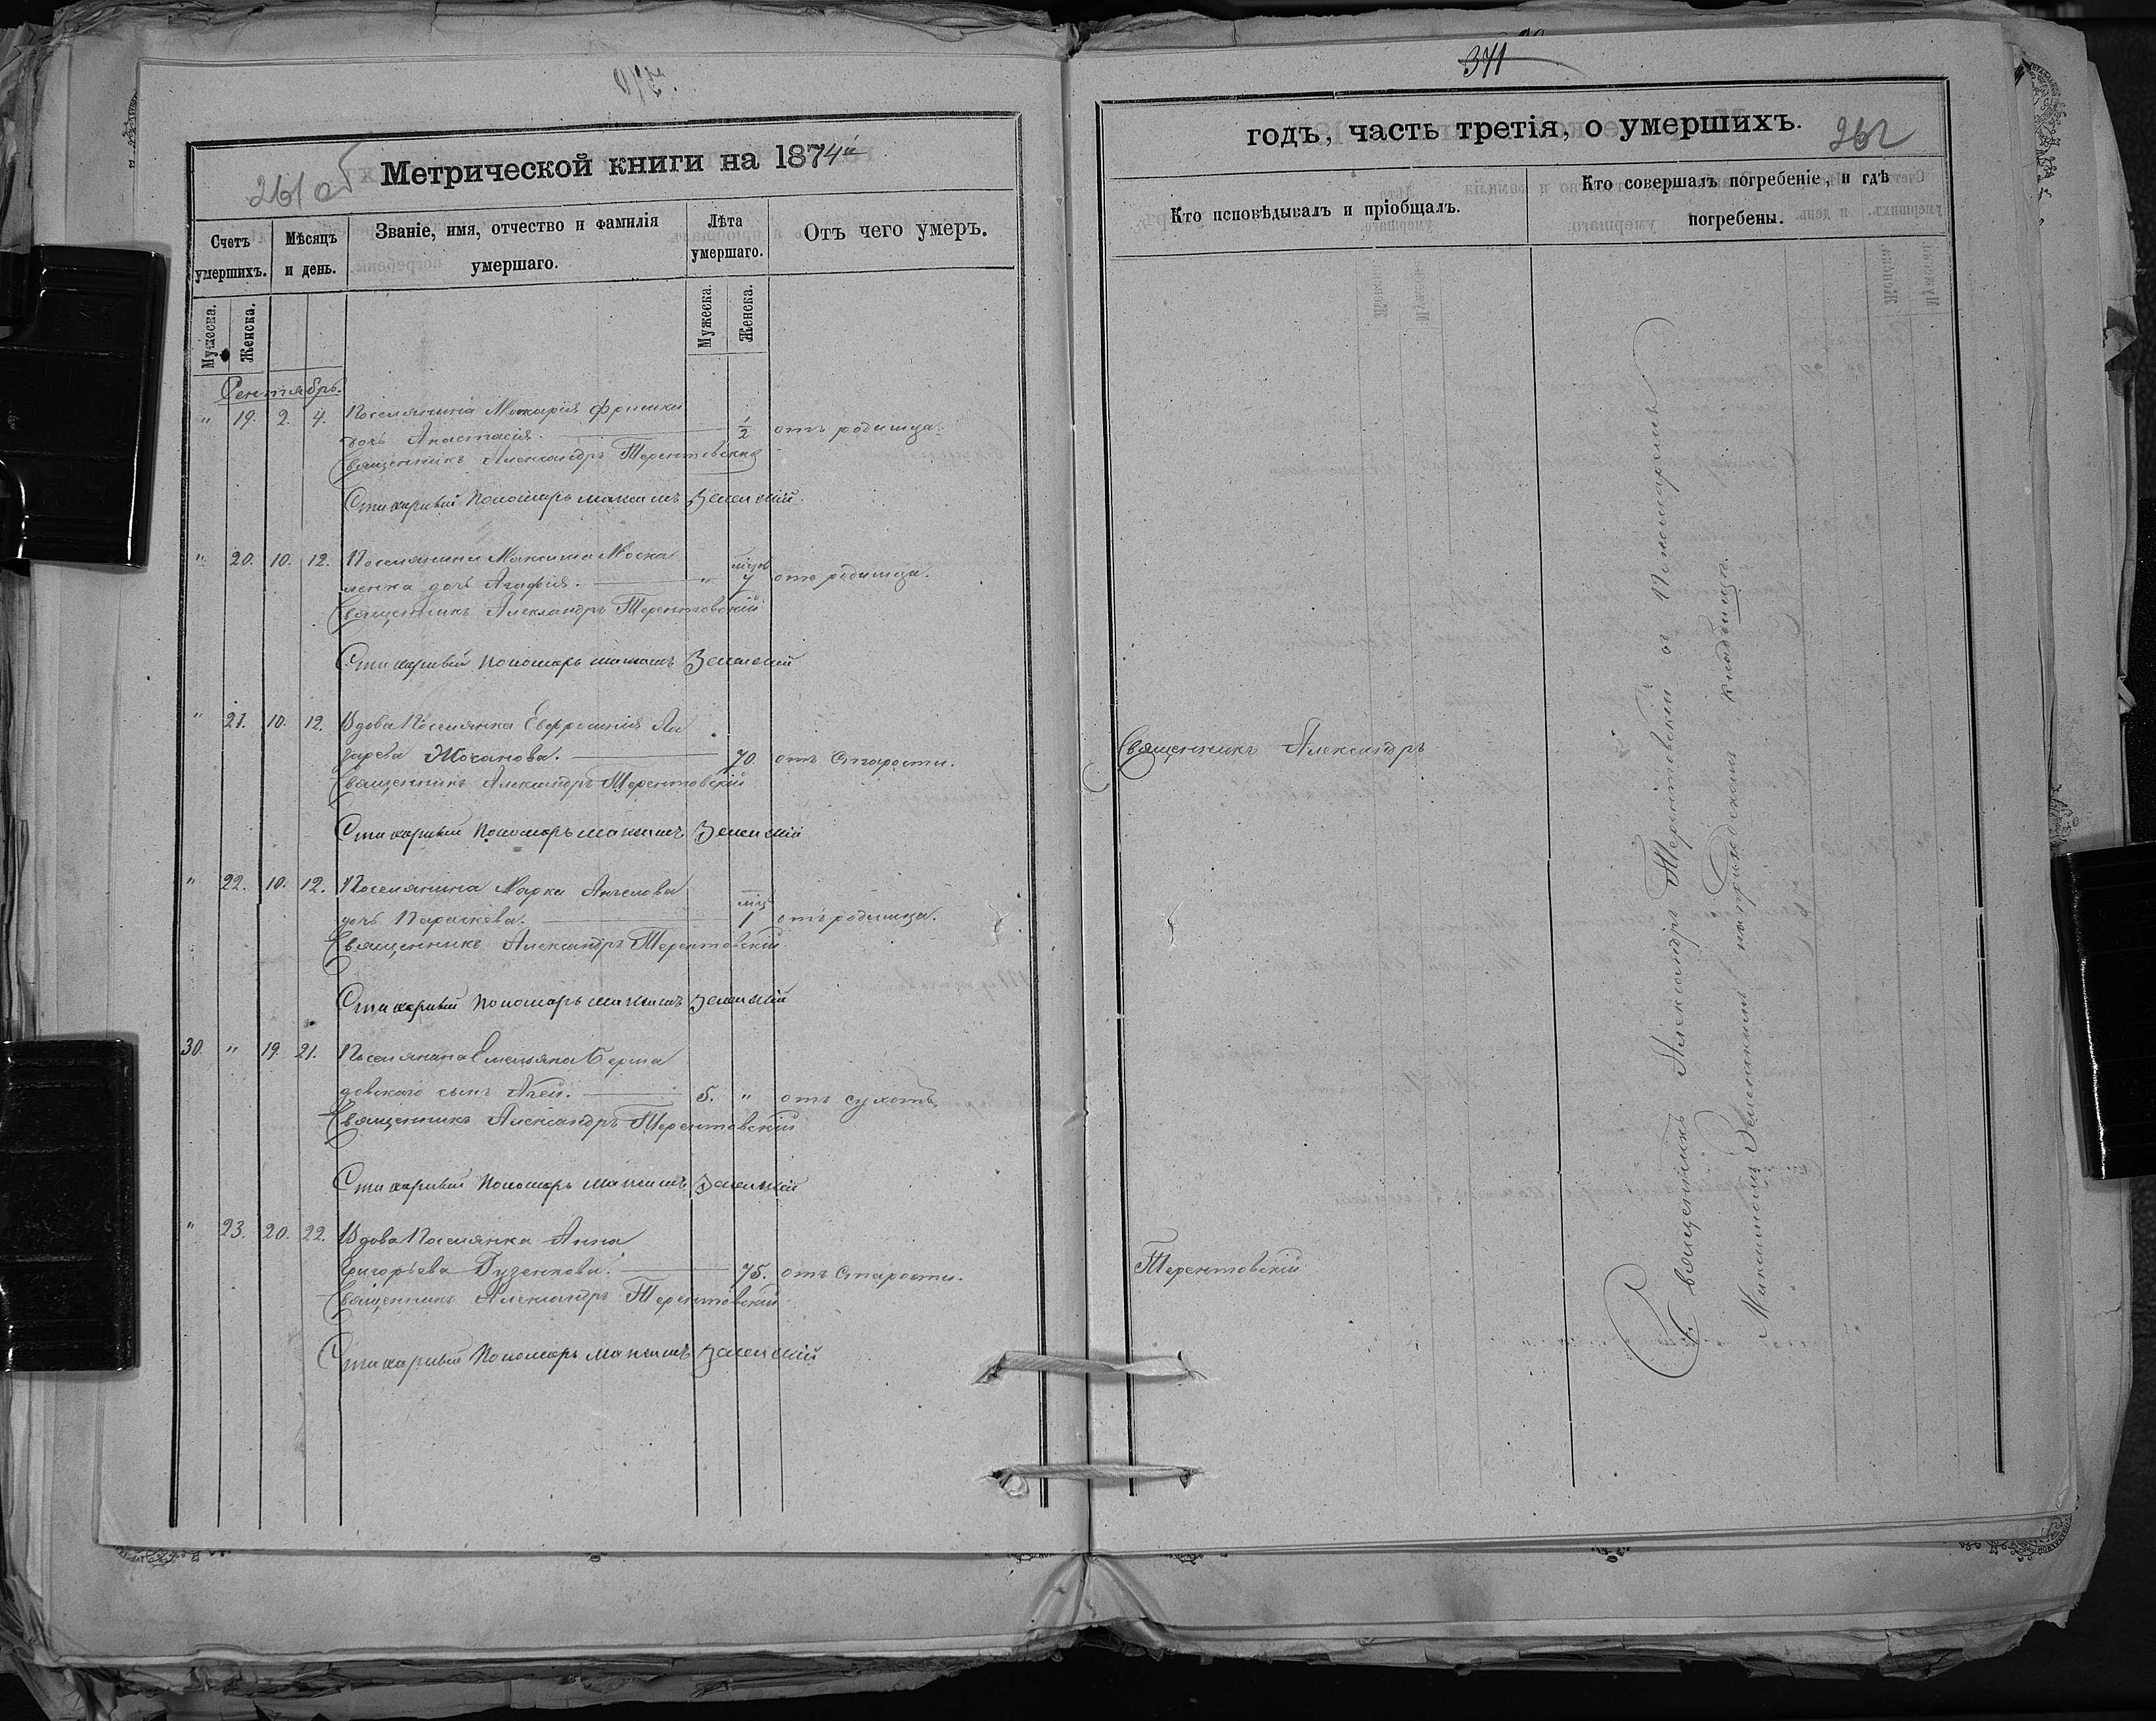 261 об
Метрической книги на 1874й
Счетъ умершихъ.
Мѣсяцъ и день.
Званіе, имя, отчество и фамилія умершаго.
Лѣта умершаго.
Отъ чего умеръ.
Мужеска.
Женска.
Мужеска.
Женска.
Сентябрь.
" 19. 2. 4. Поселянина Макарія
дочь Анастасія. 1/2 отъ родимца.
Священникъ Александръ Терентовскій
Стихарный Пономарь Максимъ Зеленскій.
" 20. 10. 12. Поселянина Максима Моска
ленка дочь Агафія. " мцов 7 отъ родимца.
Священникъ Александръ Терентовскій
Стихарный Пономарь Максимъ Зеленскій
" 21. 10. 12. Вдова Поселянка Евфросинія Ла
зарева 70. отъ Старости.
Священникъ Александръ Терентовскій
Стихарный Пономарь Максимъ Зеленскій
" 22. 10. 12. Поселянина Марка Ангелова
дочь Параскева. мцъ 1 отъ родимца.
Священникъ Александръ Терентовскій
Стихарный Пономарь Максимъ Зеленскій
30. " 19. 21. Поселянина Емельяна
сынъ 5. " отъ сухотъ.
Священникъ Александръ Терентовскій
Стихарный Пономарь Максимъ Зеленскій
" 23. 20. 22. Вдова Поселянка Анна
Григорьева Гузенкова. 75. отъ Старости.
Священникъ Александръ Терентовскій
Стихарный Пономарь Максимъ Зеленскій
371
годъ, часть третія, о умершихъ.
262
Кто исповѣдывалъ и пріобщалъ.
Кто совершалъ погребеніе, и гдѣ погребены.
Священникъ Александръ
Терентовскій
Священникъ Александръ Терентовскій съ Пономаремъ
Максимомъ Зеленскимъ на приходскомъ кладбищѣ.